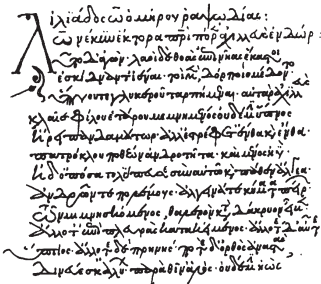 ἰλιάδος ω ὁμήρου ραψωδίας:
Ω νέκυν ἕκτορα πατρὶ πόρ' ἀχιλλεὺς ἐν δώρ:
Λῦτο δ' ἀγών. λαοὶ δὲ θοὰς ἐπὶ νῆας ἕκαστοι
ἐσκίδναντ' ἰέναι. τοὶ μὲν δόρποιο μέδοντο
ὕπνου τε γλυκεροῦ ταρπήμεναι. αὐτὰρ ἀχιλλεὺς
κλαῖε φίλου ἑτάρου μεμνημένος. οὐδέ μιν ὕπνος
ᾕρει πανδαμάτωρ. ἀλλ' ἐστρέφετ' ἔνθα καὶ ἔνθα.
πατρόκλου ποθέων ἀνδροτῆτα καὶ μένος ἠΰ.
ἠδ' ὁπόσα τολύπευσε σὺν αὐτῷ καὶ πάθεν ἄλγεα
ἀνδρῶν τε πτολέμους. ἀλεγεινά τε κύματα πείρων.
τῶν μιμνησκόμενος, θαλερὸν κατὰ δάκρυον εἶβεν
ἄλλοτ' ἐπὶ πλευρὰς κατακείμενος. ἄλλοτε δ' αὖτε
ὕπτιος. ἄλλοτε δὲ πρηνής. τοτὲ δ' ὀρθὸς ἀναστὰς,
δινεύεσκ' ἀλύων παρὰ θῖν' ἁλός. οὐδέ μιν ἠώς,